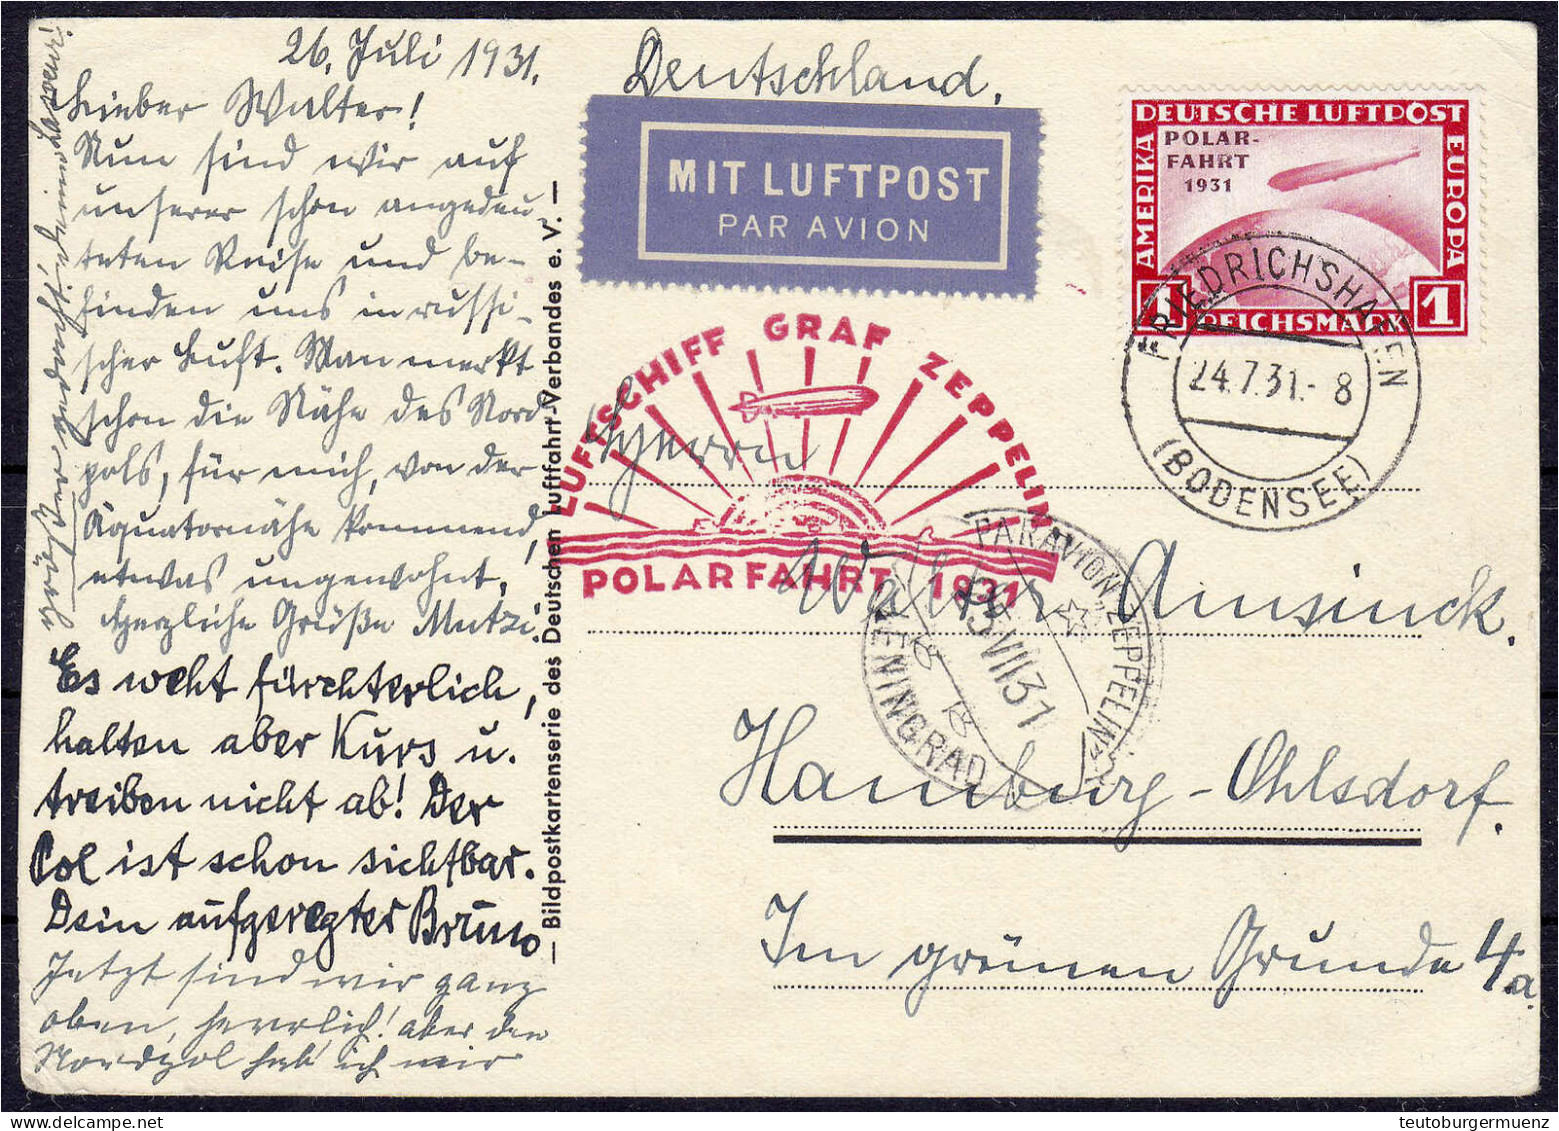 26. Juli 1931.
Lieber Walter!
Nun sind wir auf
unserer schon angedeu-
teten Reise und be-
finden uns in russi-
scher Luft. Man merkt
schon die Nähe des Nord
pols, für mich, von der
Äquatornähe kommend,
etwas ungewohnt.
Herzliche Grüße Mutzi.
Es weht fürchterlich,
halten aber Kurs u.
treiben nicht ab! Der
Pol ist schon sichtbar.
Dein aufgeregter Bruno
Jetzt sind wir ganz
oben, herrlich! aber den
Nordpol hab ich mir
— Bildpostkartenserie des Deutschen Luftfahrt-Verbandes e. V. —
Deutschland.
MIT LUFTPOST
PAR AVION
DEUTSCHE LUFTPOST
POLAR-
FAHRT
1931
AMERIKA
EUROPA
1 REICHSMARK 1
FRIEDRICHSHAFEN
24.7.31.- 8
(BODENSEE)
LUFTSCHIFF GRAF ZEPPELIN
POLARFAHRT 1931
PAR AVION „ZEPPELIN“
VII 31
LENINGRAD
Herrn
Walter Amsinck.
Hamburg-Ohlsdorf.
Im grünen Grunde 4a.
teutoburgermuenz